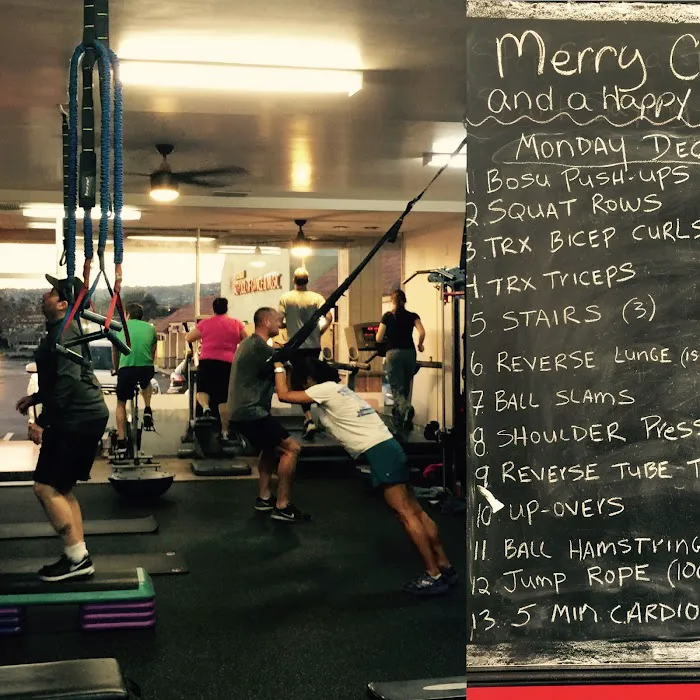 Merry C
and a Happy
MONDAY DEC
1. BOSU PUSH-UPS
2 SQUAT ROWS
3. TRX BICEP CURLS
4 TRX TRICEPS
5. STAIRS (3)
6 REVERSE LUNGE (15
7 BALL SLAMS
8 SHOULDER PRESS
9 REVERSE TUBE T
10 UP-OVERS
11 BALL HAMSTRING
12 JUMP ROPE (100
13. 5 MIN CARDIO